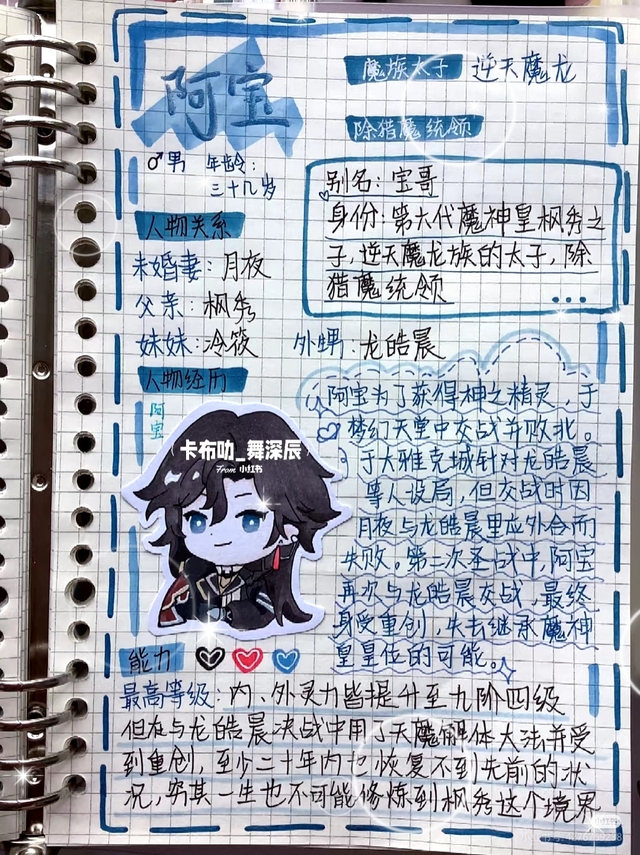 阿宝
魔族太子 逆天魔龙
除猎魔统领
♂男 年龄：
三十几岁
别名：宝哥
身份：第六代魔神皇枫秀之
子，逆天魔龙族的太子，除
猎魔统领
...
人物关系
未婚妻：月夜
父亲：枫秀
妹妹：冷筱 外甥：龙皓晨
人物经历
阿宝
阿宝为了获得神之精灵，于
梦幻天堂中交战并败北。
于大雅克城针对龙皓晨
等人设局，但交战时因
月夜与龙皓晨里应外合而
失败。第二次圣战中，阿宝
再次与龙皓晨交战，最终
身受重创，失去继承魔神
皇皇位的可能。
卡布叻_舞深辰
From 小红书
能力
最高等级：内、外灵力皆提升至九阶四级
但在与龙皓晨决战中用了天魔解体大法并受
到重创，至少二十年内也恢复不到先前的状
况，穷其一生也不可能修炼到枫秀这个境界